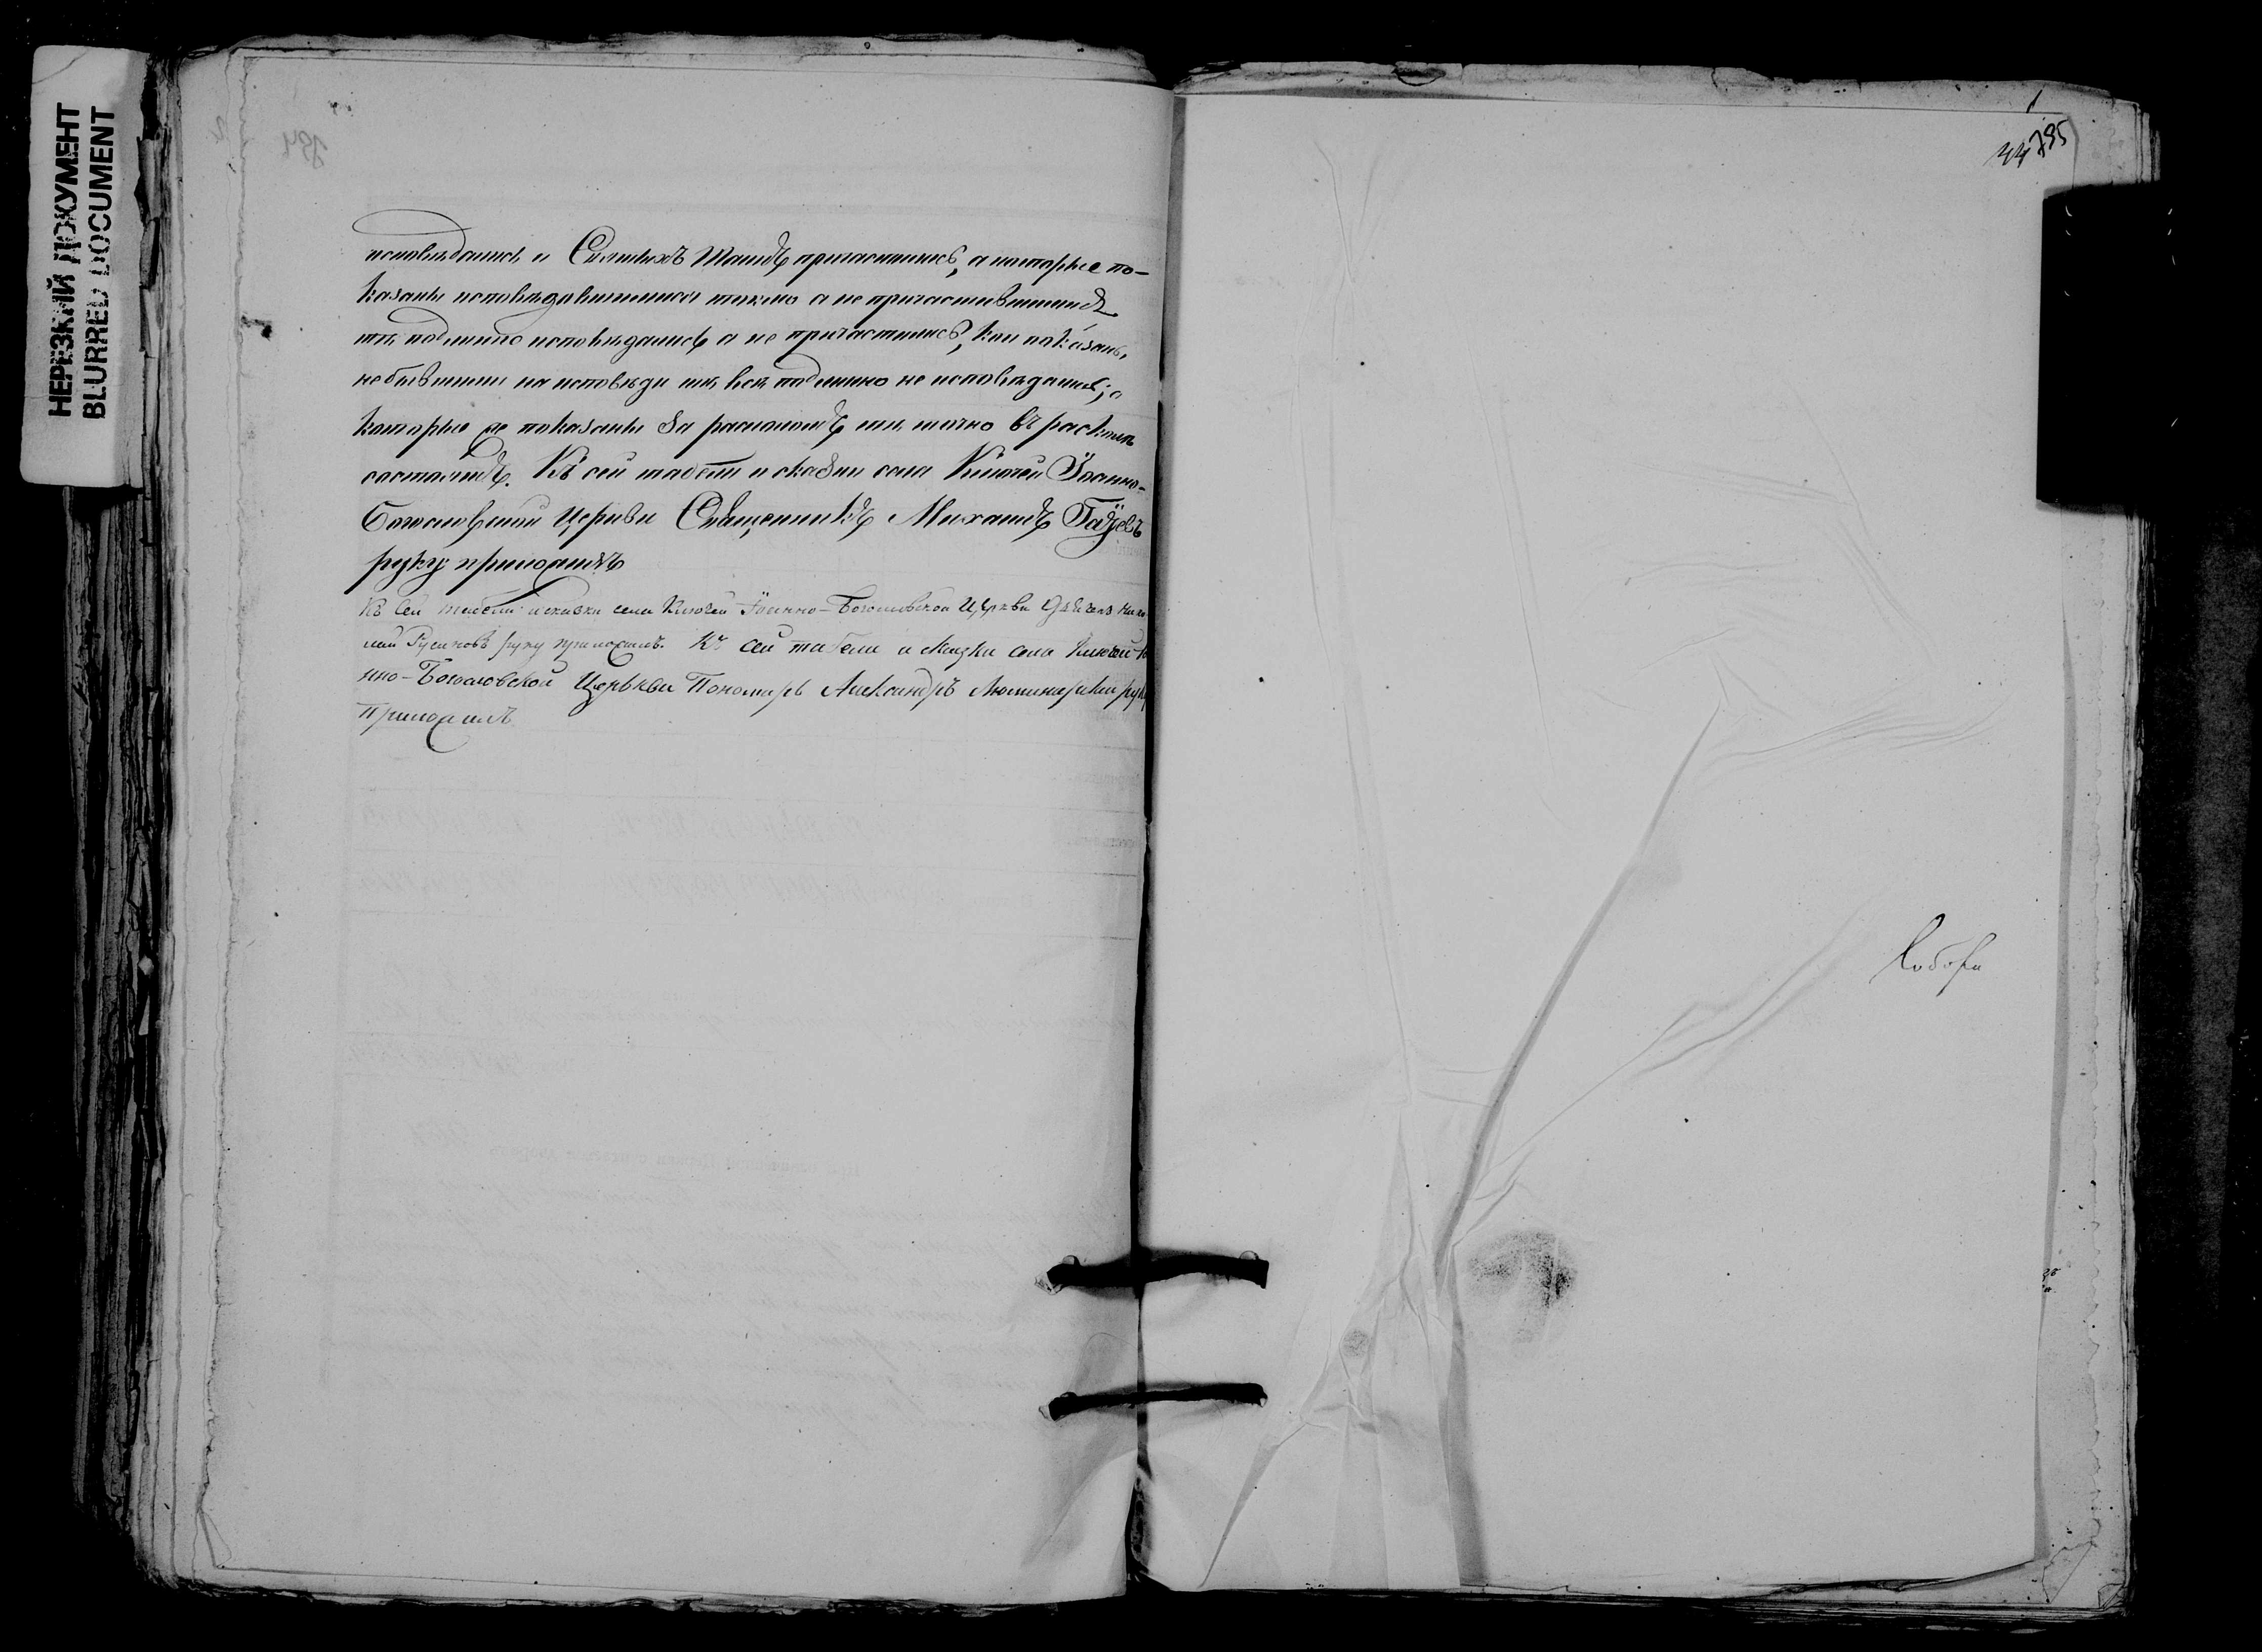 НЕРЕЗКИЙ ДОКУМЕНТ
BLURRED DOCUMENT
исповѣдались и Святыхъ Таинъ причастились, а которые по-
казаны исповѣдавшимися токмо а не причастившимися
тѣ подлинно исповѣдались а не причастились, кои показаны
не бывшими на исповѣди тѣ всѣ подлинно не исповѣдались; а
которые же показаны за расколомъ тѣ точно въ расколѣ
состоятъ. Къ сей табели и сказки села Ключей Іоанно-
Богословской Церкви Священникъ Михаилъ
руку приложилъ
Къ сей табели и сказки села Ключей Іоанно-Богословской Церкви
руку приложилъ. Къ сей табели и сказки села Ключей
нно-Богословской Церькви Пономарь Александръ руку
Приложилъ
795